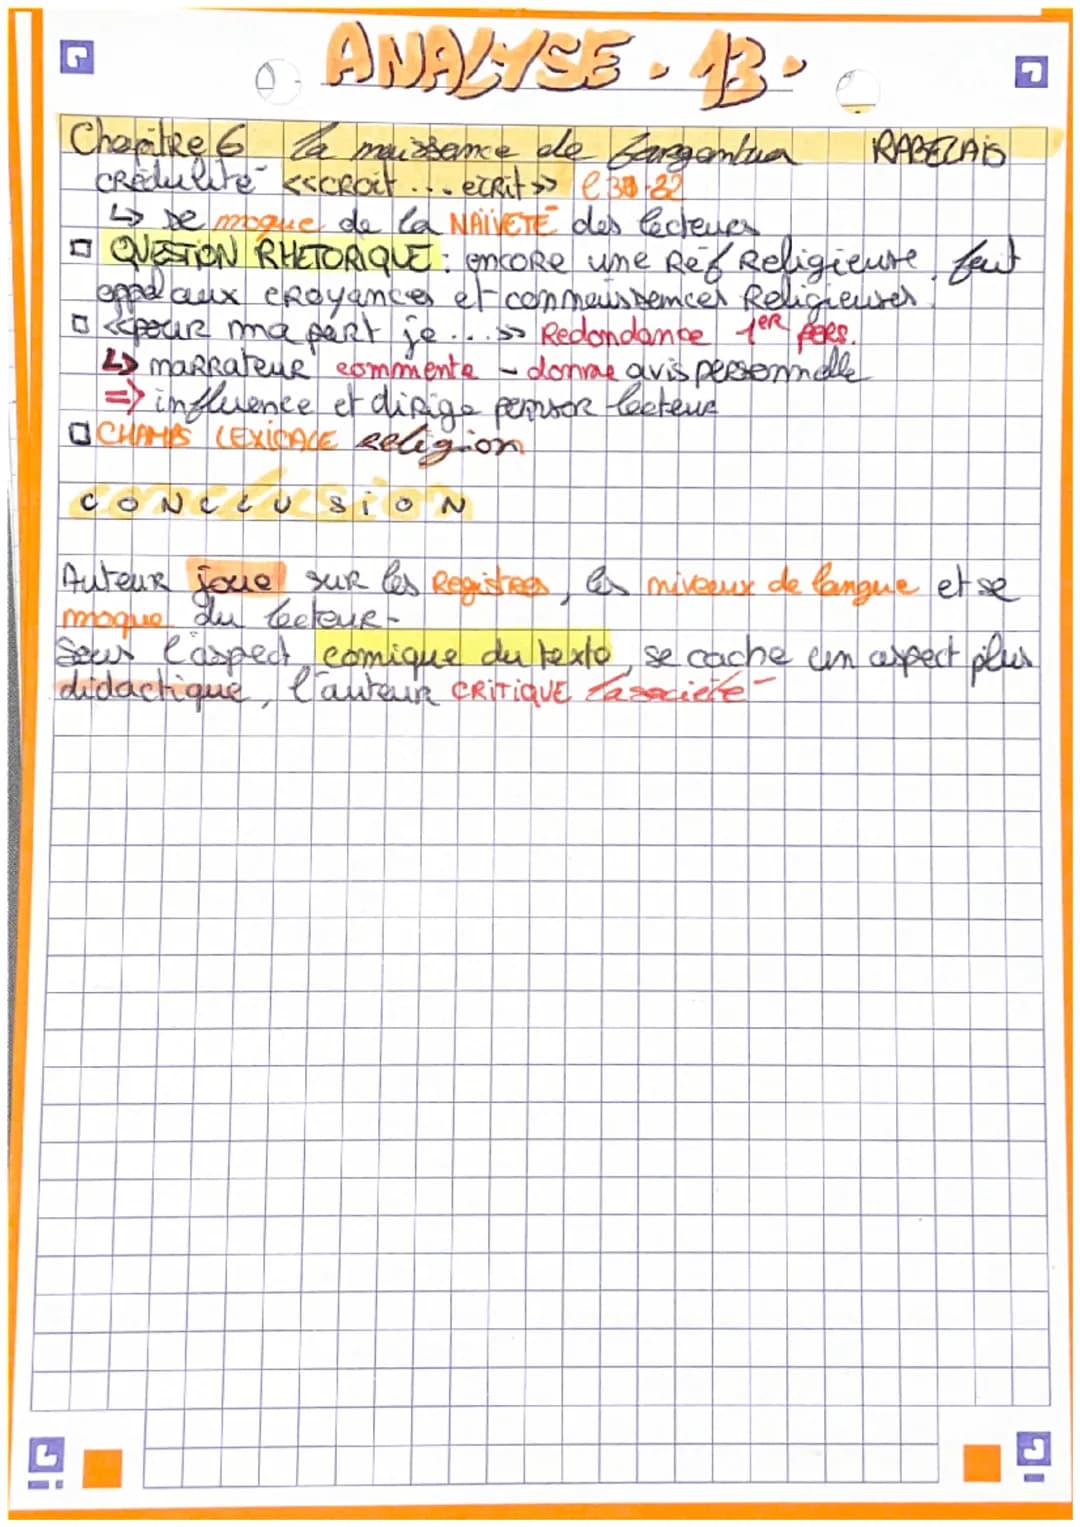 ANALYSE . 13.
Chapitre 6 la naissance de Gargantua RABELAIS
crédulité <<croit ... écrit>> l 30-32
↳ se moque de la NAÏVETÉ des lecteurs
□ QUESTION RHETORIQUE : encore une Réf Religieuse, fait
appel aux croyances et connaissances Religieuses.
□ <<pour ma part je ... >> Redondance 1er pers.
↳ narrateur commente - donne avis personnelle
=> influence et dirige penser lecteur
□ CHAMPS LEXICALE religion
CONCLUSION
Auteur joue sur les Registres, les niveaux de langue et se
moque du lecteur-
Sous l'aspect comique du texte, se cache un aspect plus
didactique, l'auteur CRITIQUE la société